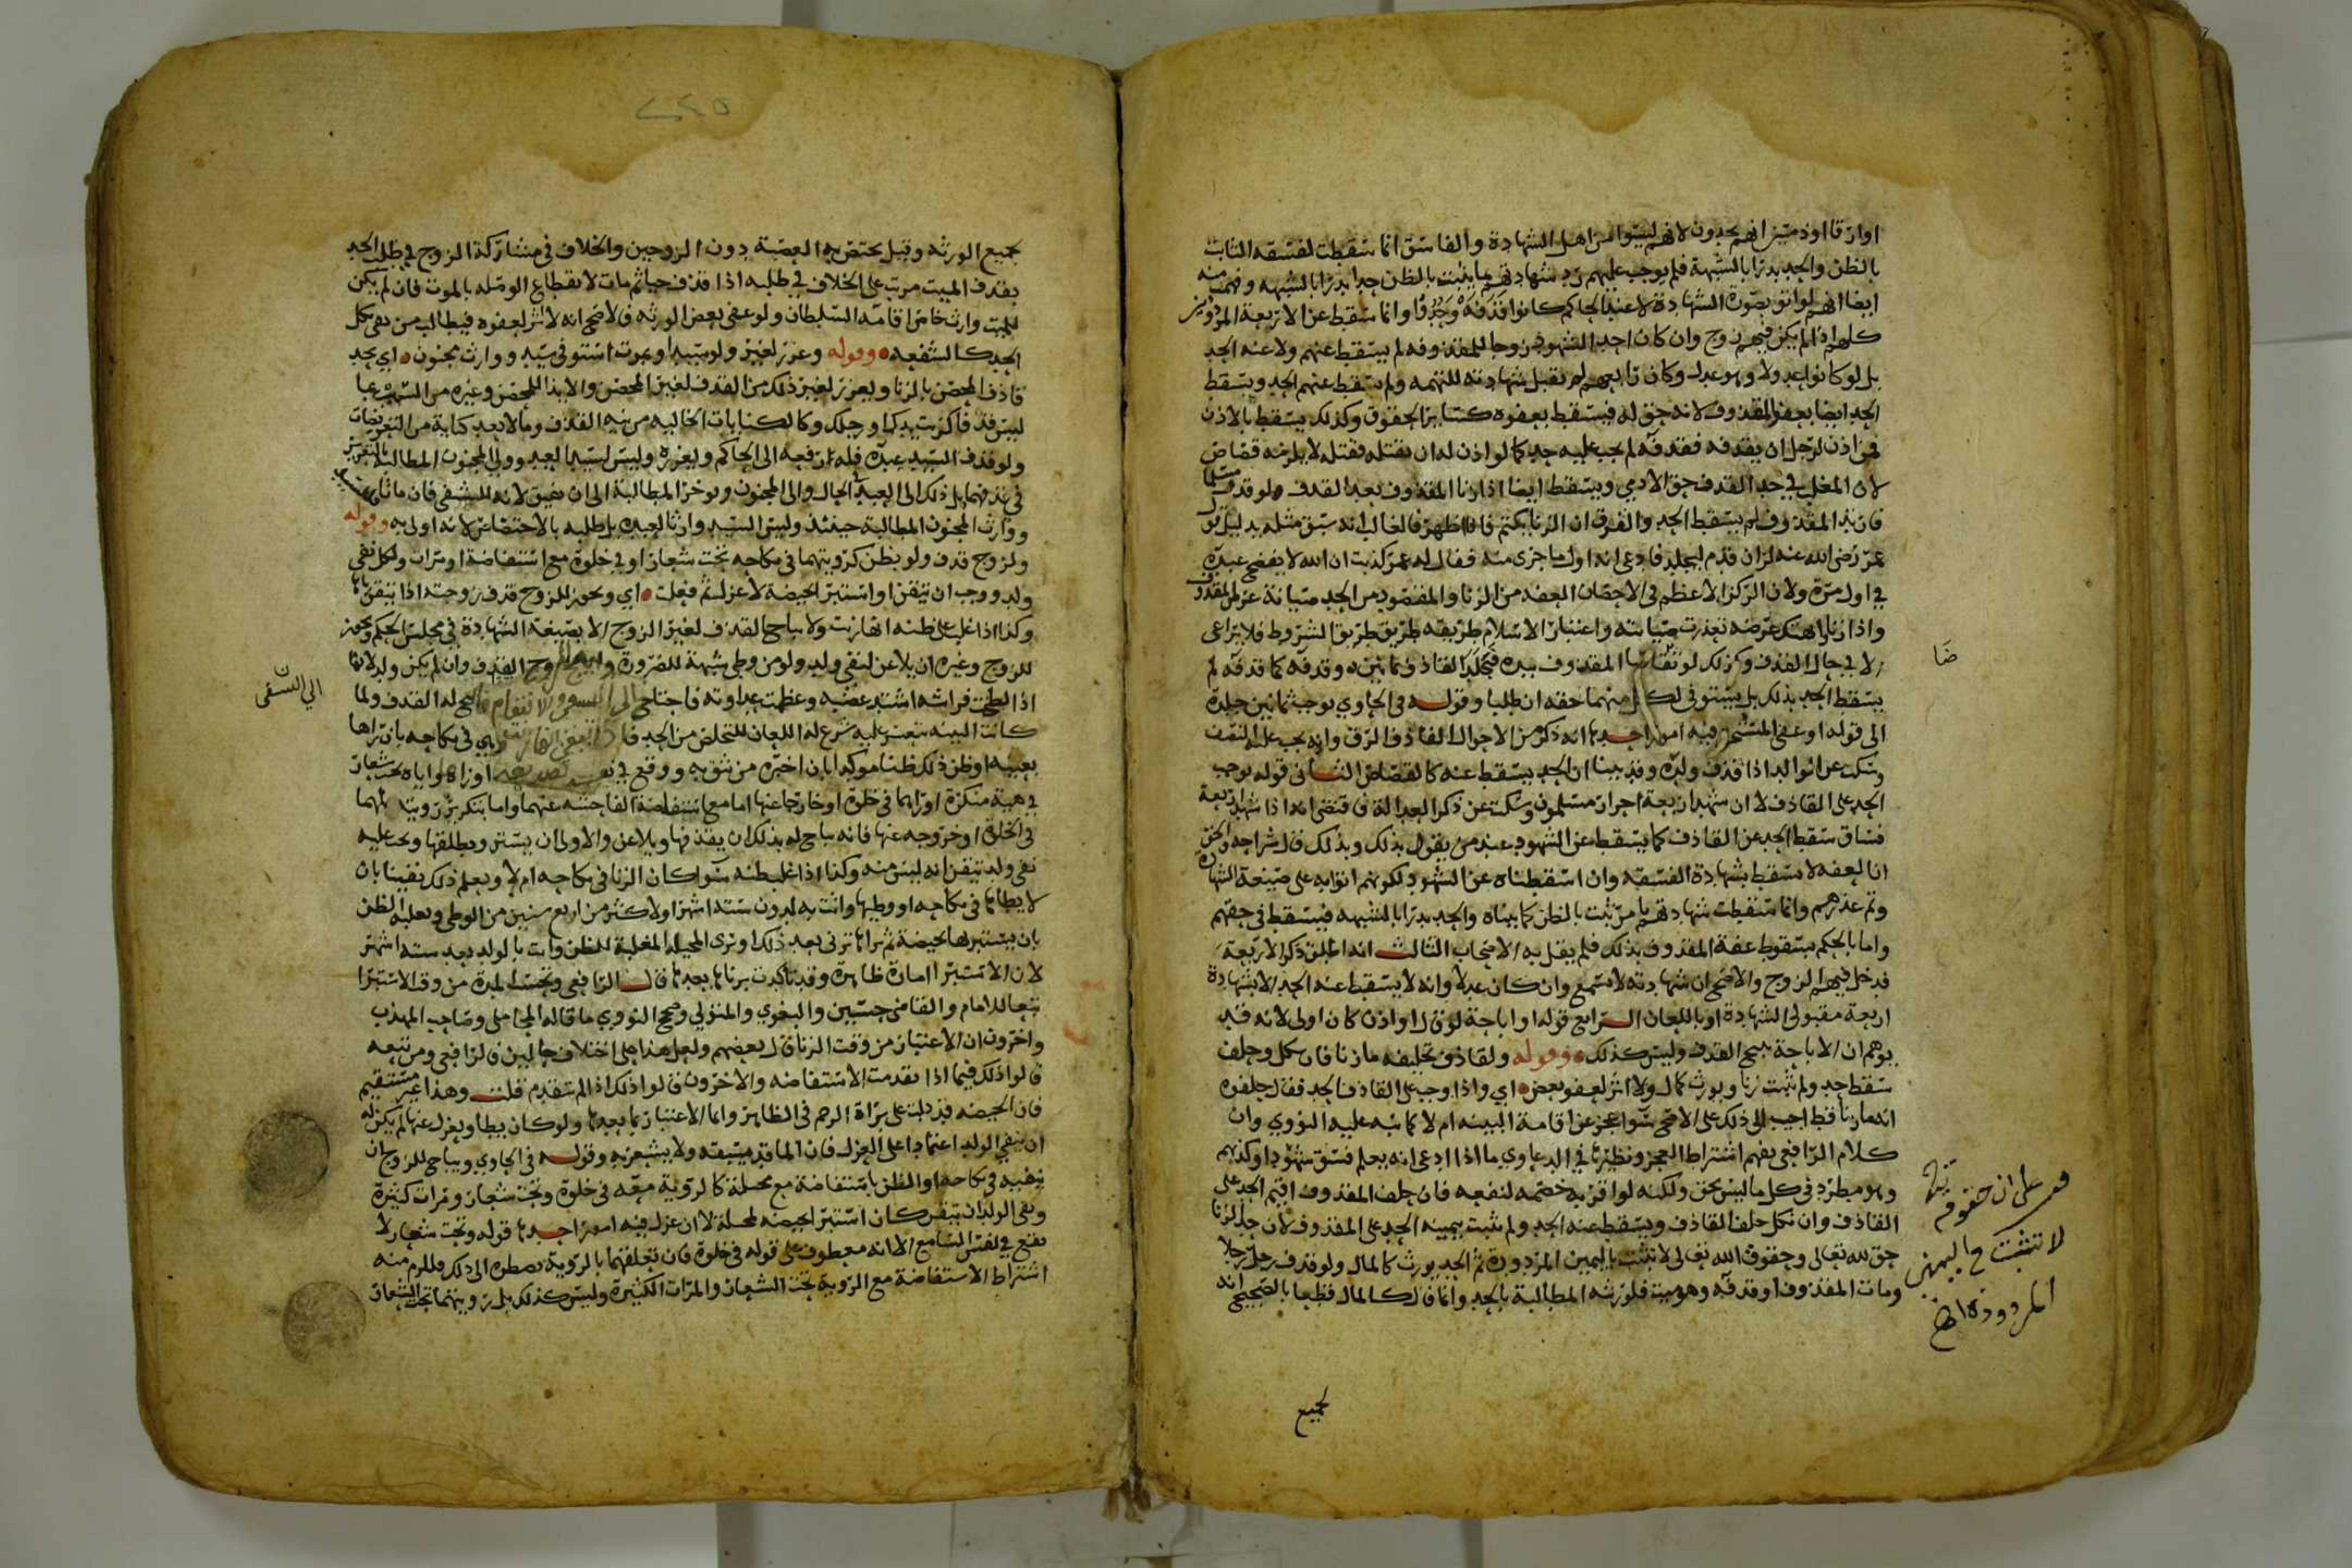 اوارقا اوذميين انهم يحدون لانهم ليسوا من اهل الشهادة والفاسق انما سقطت لفسقه الثابت
بالظن والحد يدرا بالشبهة فلم يوجب عليهم رد شهادتهم بما يثبت بالظن حدا يدرا بالشبهه وفهم منه
ايضا انهم لو اتو بصورة الشهادة لا عند الحاكم كانوا قذفة وحدوا وانما سقط عن الاربعة المذكورين
كلهم اذا لم يكن فيهم زوج وان كان احد الشهود زوجا للمقذوفه لم يسقط عنهم ولا عنه الحد
بل لو كانوا عدولا وهو عدل وكان رابعهم لم تقبل شهادته للتهمه ولم يسقط عنهم الحد ويسقط
الحد ايضا بعفو المقذوف لانه حق له فيسقط بعفوه كسائر الحقوق وكذلك يسقط بالاذن
فمن اذن لرجل ان يقذفه فقذفه لم يجب عليه حد كما لو اذن له ان يقتله فقتله لا يلزمه قصاص
لان المغلب في حد القذف حق الادمي ويسقط ايضا اذا زنا المقذوف بعد القذف ولو قذف مسلما
فارتد المقذوف لم يسقط الحد والفرق ان الزنا يكتم فاذا ظهر فالغالب انه سبق مثله بدليل ان
عمر رضي الله عنه لزان قدم ليجلد فادعى انه اول ما جرى منه فقال له عمر كذبت ان الله لا يفضح عبده
في اول مرة ولان الركن الاعظم في الاحصان العفه من الزنا والمقصود من الحد صيانة عرض المقذوف
واذا زنا انهتك عرضه تعذرت صيانته واعتبار الاسلام طريقه طريق الشروط فلا يراعى
الا في حال القذف وكذلك لو تقاضا المقذوف بيده فجلد القاذف ثمانين وقذفه كما قذفه لم
يسقط الحد بذلك بل يستوفى لكل منهما حقه ان طلبا وقوله في الحاوي يوجب ثمانين جلدة
الى قوله او عفى المستحق فيه امور احدها انه ذكر من الاحوال القاذف الرق وانه يجب عليه النصف
وسكت عن الوالد اذا قذف ولده وقد بينا ان الحد يسقط عنه كالقصاص الثاني قوله يوجب
الحد على القاذف لا ان شهد اربعة احرار مسلمون وسكت عن ذكر العدالة فاقتضى انه اذا شهد اربعة
فساق سقط الحد عن القاذف كما يسقط عن الشهود عند من يقول بذلك وبذلك قال شراحه والحق
ان العفه لا تسقط بشهادة الفسقه وان اسقطناه عن الشهود لكونهم اتوا به على صيغة الشهادة
وتم عذرهم وانما سقطت شهادتهم بامر ثبت بالظن كما بيناه والحد يدرا بالشبهه فيسقط في حقهم
واما بالحكم بسقوط عفة المقذوف بذلك فلم يقل به الاصحاب الثالث انه اطلق ذكر الاربعة
فدخل فيهم الزوج والاصح ان شهادته لا تسمع وان كان عدلا وانه لا يسقط عنه الحد الا بشهادة
اربعة مقبولي الشهادة او باللعان الرابع قوله او اباحة لوقال او اذن كان اولى لانه قد
يوهم ان الاباحة تبيح القذف وليس كذلك وقوله ولقاذف تحليفه ما زنا فان نكل وحلف
سقط حد ولم يثبت زنا ويورث كمال ولا اثر لعفو بعض اي واذا وجب على القاذف الحد فقال حلفوه
انه ما زنا قط اجيب الى ذلك على الاصح سوا عجز عن اقامة البينه ام لا كما نبه عليه النووي وان
كلام الرافعي يفهم اشتراط العجز ونظيرها في الدعاوي ما اذا ادعى انه يعلم فسق شهوده او كذبهم
وهو مطرد في كل ما ليس بحق ولكنه لو اقر به خصمه لنفعه فان حلف المقذوف اقيم الحد على
القاذف وان نكل حلف القاذف ويسقط عنه الحد ولم تثبت بيمينه الحد على المقذوف لان حد الزنا
حق لله تعالى وحقوق الله تعالى لا تثبت باليمين المردودة ثم الحد يورث كالمال ولو قذف رجل رجلا
ومات المقذوف او قذفه وهو ميت فلورثته المطالبة بالحد وانما قال كالمال قطعا بالصحيح انه
ضا
على ان حقوق
لا تثبت باليمين
المردودة
لجميع
لجميع الورثه وقيل يختص به العصبة دون الزوجين والخلاف في مشاركة الزوج في طلب الحد
بقذف الميت مرتب على الخلاف في طلبه اذا قذف حيا ثم مات لانقطاع الوصله بالموت فان لم يكن
للميت وارث خاص اقامه السلطان ولو عفى بعض الورثه فالاصح انه لا اثر لعفوه فيطالب من بقى بكل
الحد كالشفعه وقوله وعزر لغيره ولو سيدا وبموت استوفى سيد ووارث مجنون اي يحد
قاذف المحصن بالزنا ويعزر لغير ذلك من القذف لغير المحصن والايذا للمحصن وغيره من السب بما
ليس قذفا كزنت يدك او رجلك وكالكنايات الخاليه من نيه القذف وما لا يعد كناية من التعريضات
ولو قذف السيد عبده فله رفعه الى الحاكم ويعزره وليس لسيد العبد وولي المجنون المطالبة بالتعزير
في قذفهما بل ذلك الى العبد في الحال والى المجنون وتوخر المطالبة الى ان يفيق لانه للتشفي فان ماتا
ووارث المجنون المطالبة حينئذ وليس السيد وارثا لعبده بل طلبه بالاختصاص لانه اولى به وقوله
ولزوج قذف ولو بظن كرويتهما في نكاحه تحت شعار او في خلوة مع استفاضة او مرات ولكل نفي
ولد ووجب ان تيقن او استبرا بحيضة لا عزل ثم فعلت اي ويجوز للزوج قذف زوجته اذا تيقن زناها
وكذا اذا غلب على ظنه انها زنت ولا يباح القذف لغير الزوج الا بصيغة الشهادة في مجلس الحكم ويجوز
للزوج وغيره ان يلاعن لنفي ولد ولو من وطي شبهة للضرورة وابيح للزوج القذف وان لم يكن ولد لانها
اذا لطخت فراشه اشتد غضبه وعظمت عداوته فاحتاج الى التشفي والانتقام فابيح له القذف ولما
كانت البينه تتعسر عليه شرع له اللعان للتخلص من الحد فاذا تيقن انها زنت وهي في نكاحه بان راها
بعينه او ظن ذلك ظنا موكدا بان اخبره من يثق به ووقع في نفسه تصديقه او راها واياه تحت شعار
في هيئة منكرة او راهما في خلوة او خارجا عنها اما مع استفاضة الفاحشه عنهما واما بتكرير رويته لهما
في الخلوة او خروجه عنها فانه يباح له بذلك ان يقذفها ويلاعن والاولى ان يستر ويطلقها ويجب عليه
نفي ولد تيقن انه ليس منه وكذا اذا غلب ظنه سوا كان الزنا في نكاحه ام لا ويعلم ذلك يقينا بان
لا يطاها في نكاحه او وطيها واتت به لدون ستة اشهر او لاكثر من اربع سنين من الوطي ويغلبه الظن
بان يستبرها بحيضة ثم يراها تزني بعد ذلك او يرى المخيله المغلبة للظن واتت بالولد بعد ستة اشهر
لان الاستبرا امارة ظاهرة وقد تاكدت برناها بعدها قال الرافعي وتحسب المدة من وقت الاستبرا
تبعا للامام والقاضي حسين والبغوي والمتولي وصحح النووي ما قاله المحاملي وصاحب المهذب
واخرون ان الاعتبار من وقت الزنا قال بعضهم ولعل هذا على اختلاف حالين فالرافعي ومن تبعه
قالوا ذلك فيما اذا تقدمت الاستفاضه والاخرون قالوا ذلك اذا لم تتقدم قلت وهذا غير مستقيم
فان الحيضه قد دلت على براة الرحم في الظاهر وانما الاعتبار بما بعدها ولو كان يطا ويعزل عنها لم يكن له
ان ينفي الولد اعتمادا على العزل فان الما قد يسبقه ولا يشعر به وقوله في الحاوي ويباح للزوج ان
تيقنه في نكاحه او الظن باستفاضة مع مخيلة كالروية معه في خلوة وتحت شعار ومرات كثيرة
ونفى الولد ان تيقن كان استبرا بحيضه لمخيلة لا ان عزل فيه امور احدها قوله وتحت شعار لا
يقع في نفس السامع الا انه معطوف على قوله في خلوة فان تعلقهما بالروية يضطره الى ذلك ويلزم منه
اشتراط الاستفاضة مع الروية تحت الشعار والمرات الكثيرة وليس كذلك بل رويتهما تحت الشعار
الى التشفى